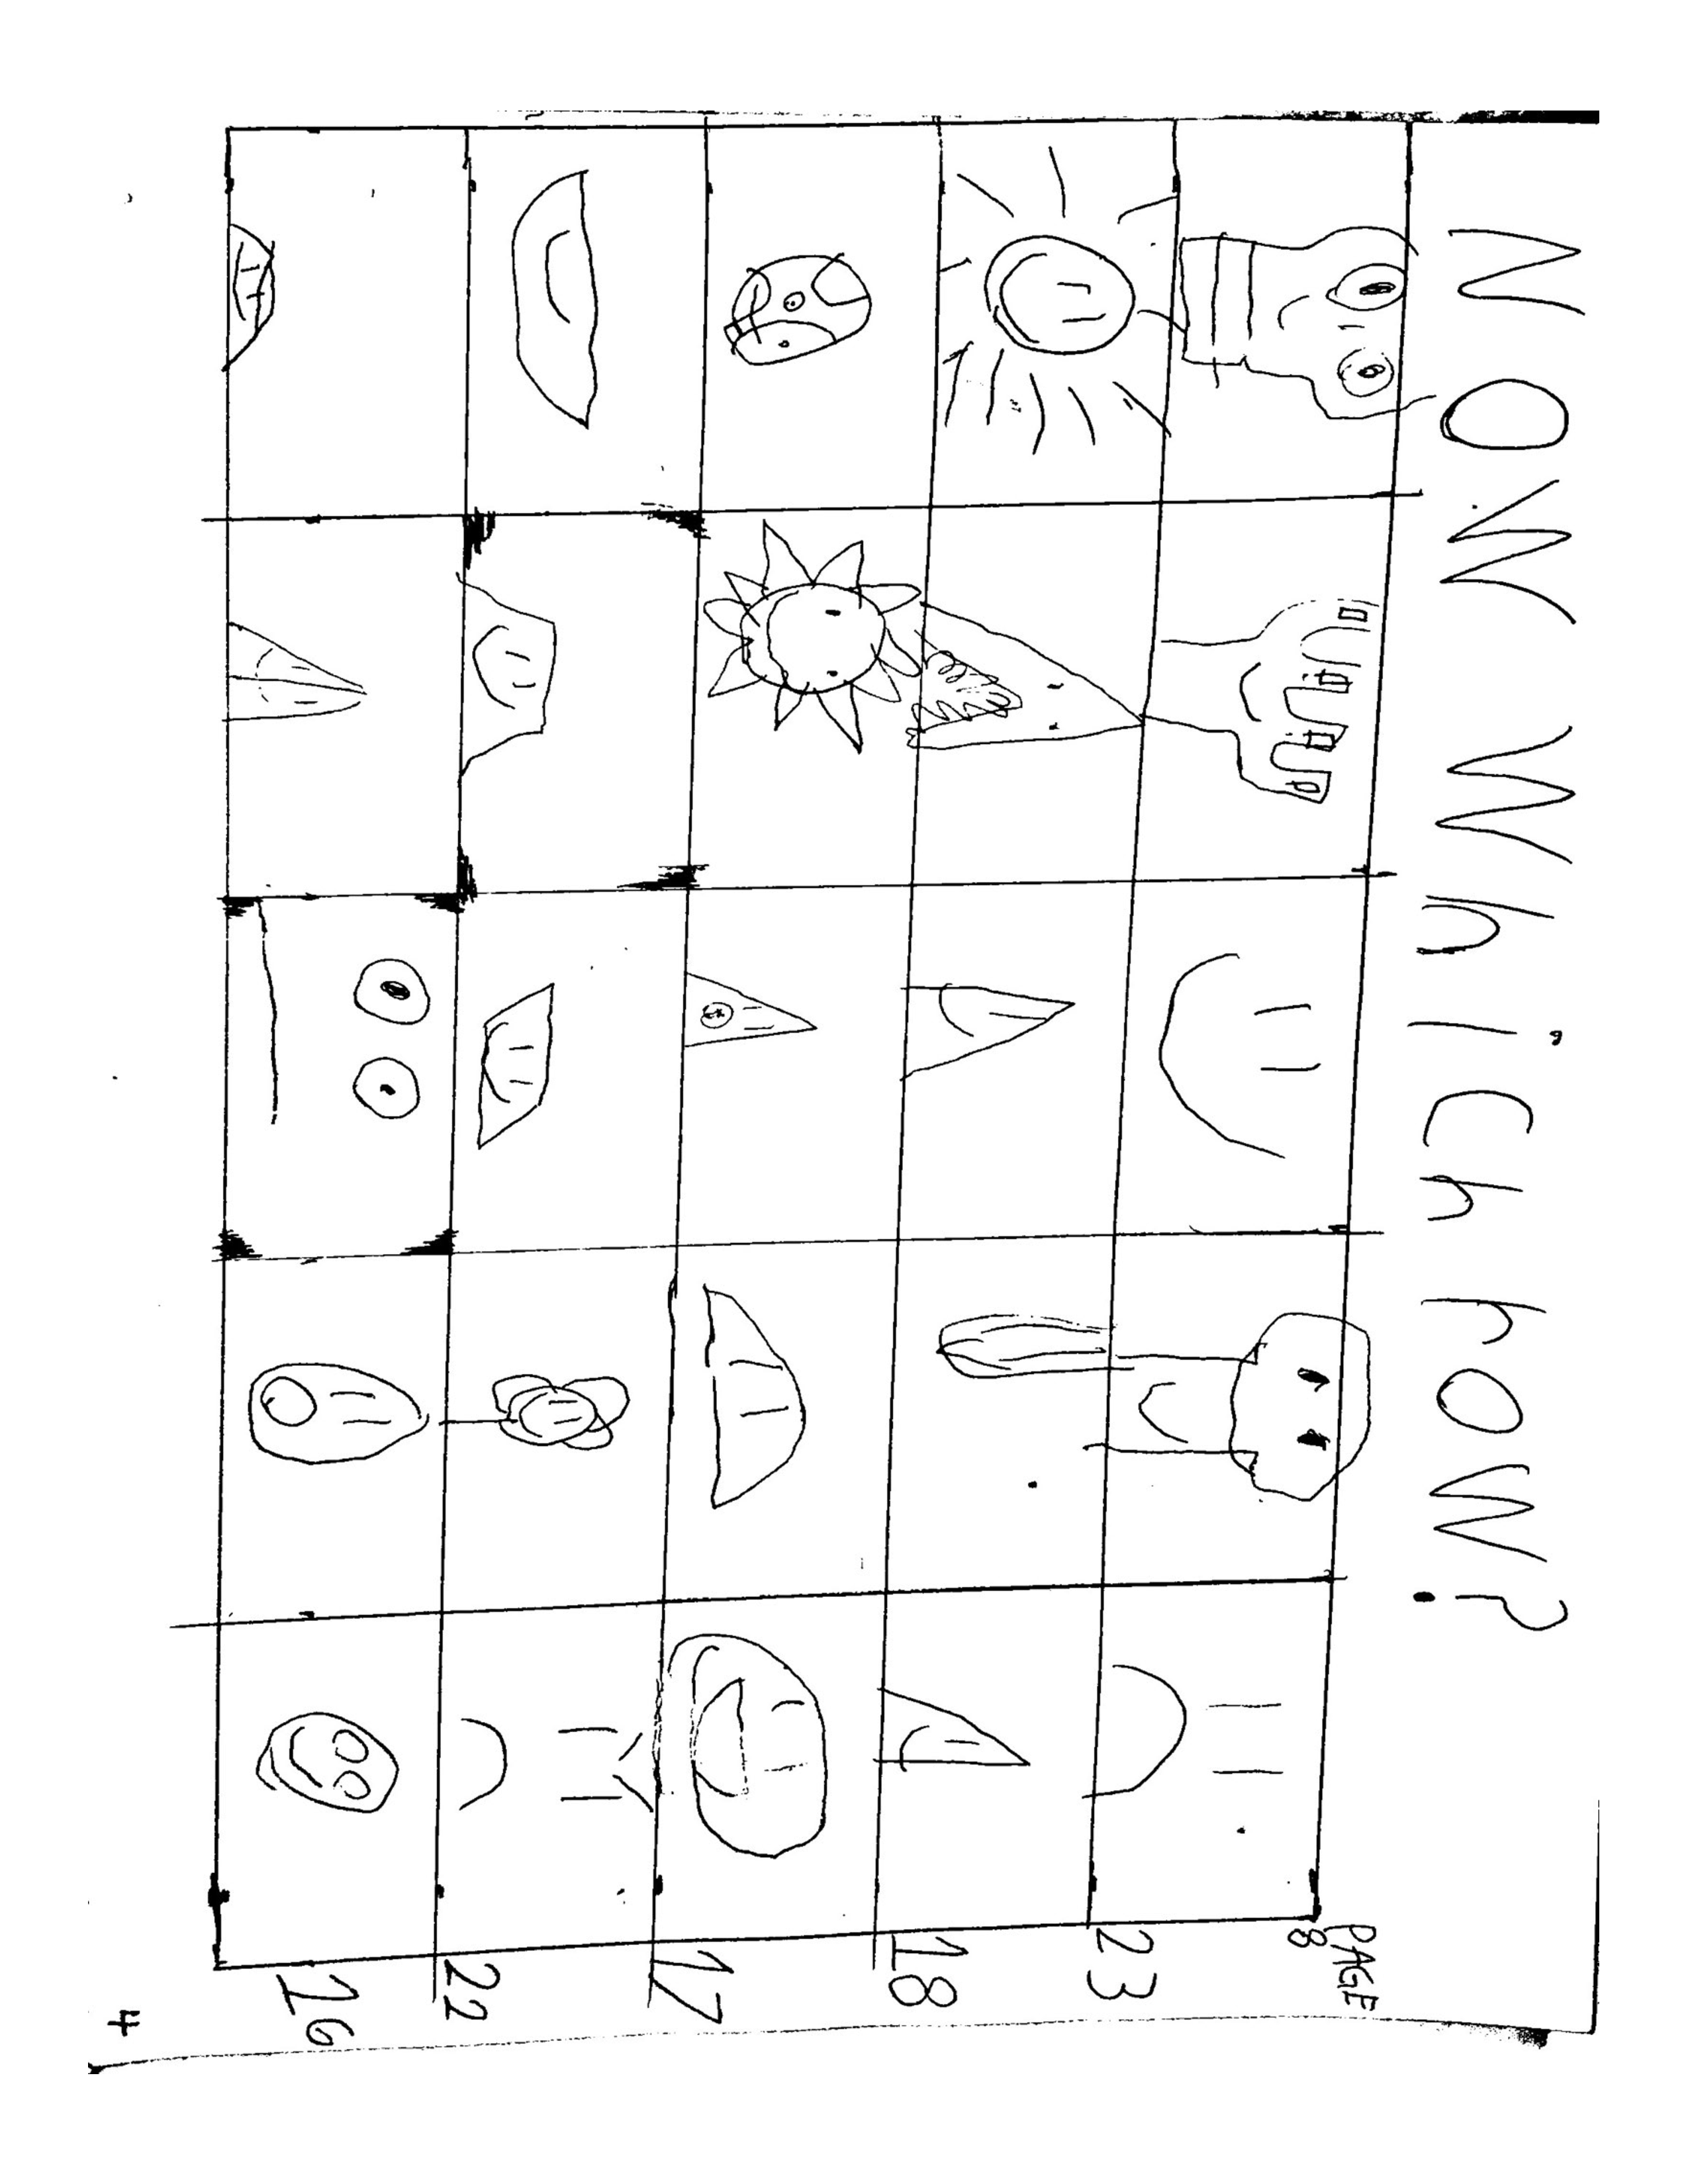 NOW WhiCh rOW?
PAGE
8
23
18
17
22
16
4